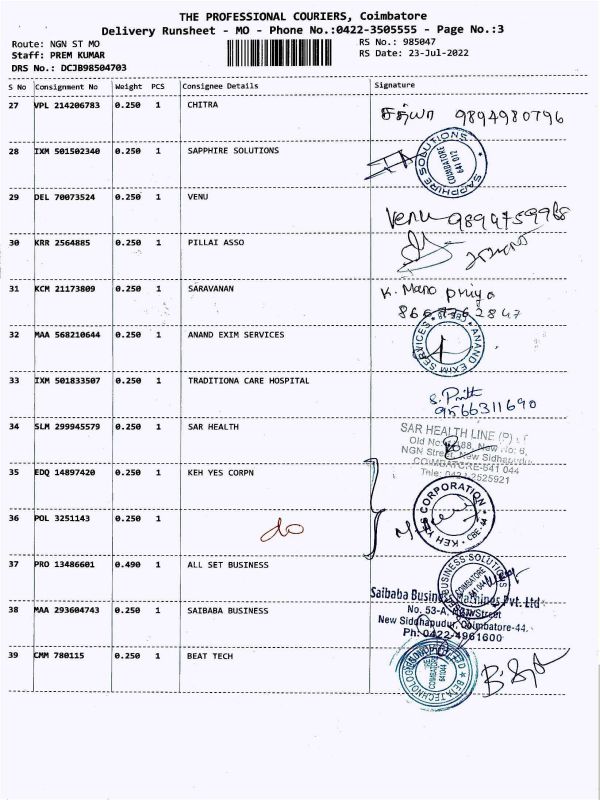 THE PROFESSIONAL COURIERS, Coimbatore
Delivery Runsheet - MO - Phone No.:0422-3505555 - Page No.:3
Route: NGN ST MO
RS No.: 985047
Staff: PREM KUMAR
RS Date: 23-Jul-2022
DRS No.: DCJB98504703
S No Consignment No Weight PCS Consignee Details Signature
27 VPL 214206783 0.250 1 CHITRA
சத்யா 9894980796
28 IXM 501502340 0.250 1 SAPPHIRE SOLUTIONS
SAPPHIRE SOLUTIONS
COIMBATORE
641 012
29 DEL 70073524 0.250 1 VENU
Venu 9894759968
30 KRR 2564885 0.250 1 PILLAI ASSO
31 KCM 21173809 0.250 1 SARAVANAN
K. Mano priya
32 MAA 568210644 0.250 1 ANAND EXIM SERVICES
ANAND EXIM SERVICES
33 IXM 501833507 0.250 1 TRADITIONA CARE HOSPITAL
9566311690
34 SLM 299945579 0.250 1 SAR HEALTH
SAR HEALTH LINE (P)
NGN Street, New Sidhapudur
COIMBATORE-641 044
Tele: 0422-2525921
35 EDQ 14897420 0.250 1 KEH YES CORPN
KEH YES CORPORATION
CBE-44
36 POL 3251143 0.250 1
do
37 PRO 13486601 0.490 1 ALL SET BUSINESS
BUSINESS SOLUTIONS
38 MAA 293604743 0.250 1 SAIBABA BUSINESS
Saibaba Business Machines Pvt. Ltd
No. 53-A, Street
New Siddhapudur, Coimbatore-44.
Ph: 0422-4961600
39 CMM 780115 0.250 1 BEAT TECH
COIMBATORE
641044